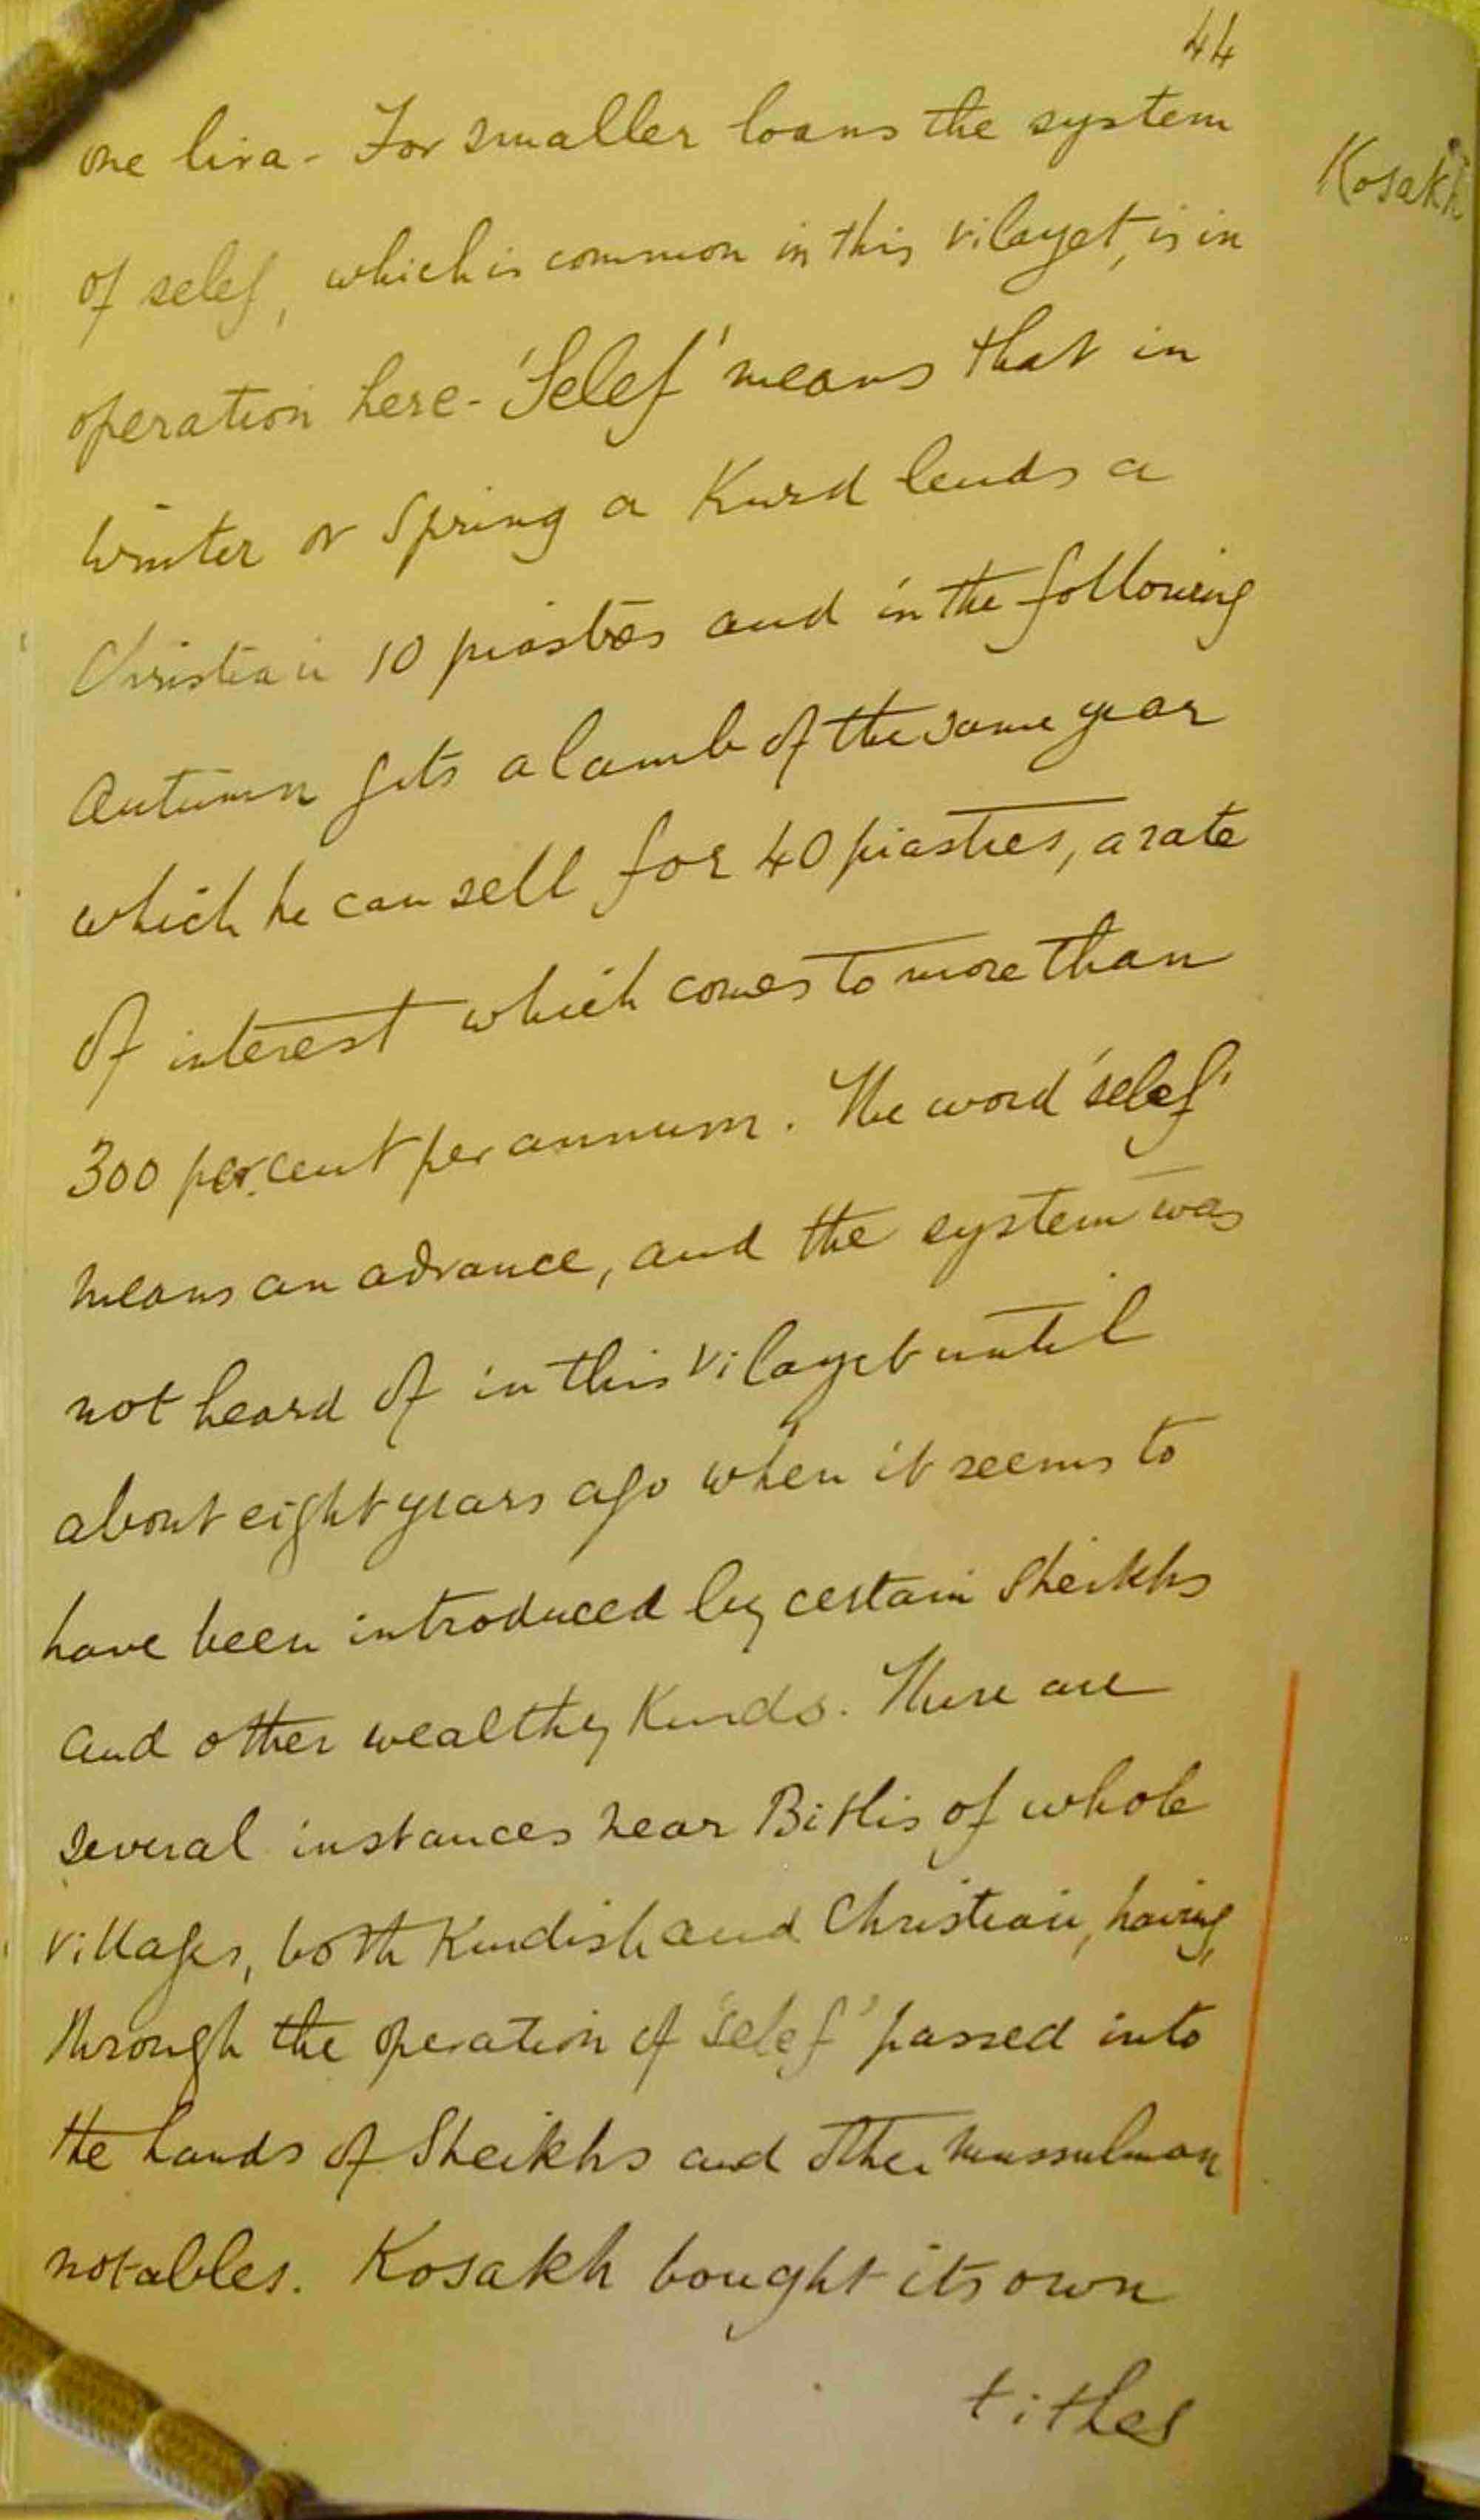 44
one lira - For smaller loans the system
Kosakh
of selef, which is common in this vilayet, is in
operation here - 'Selef' means that in
Winter or Spring a Kurd lends a
Christian 10 piastres and in the following
Autumn gets a lamb of the same year
which he can sell for 40 piastres, a rate
of interest which comes to more than
300 per cent per annum. The word 'selef'
means an advance, and the system was
not heard of in this vilayet until
about eight years ago when it seems to
have been introduced by certain Sheikhs
and other wealthy Kurds. There are
several instances near Bitlis of whole
villages, both Kurdish and Christian, having,
through the operation of 'selef' passed into
the hands of Sheikhs and other Mussulman
notables. Kosakh bought its own
tithes